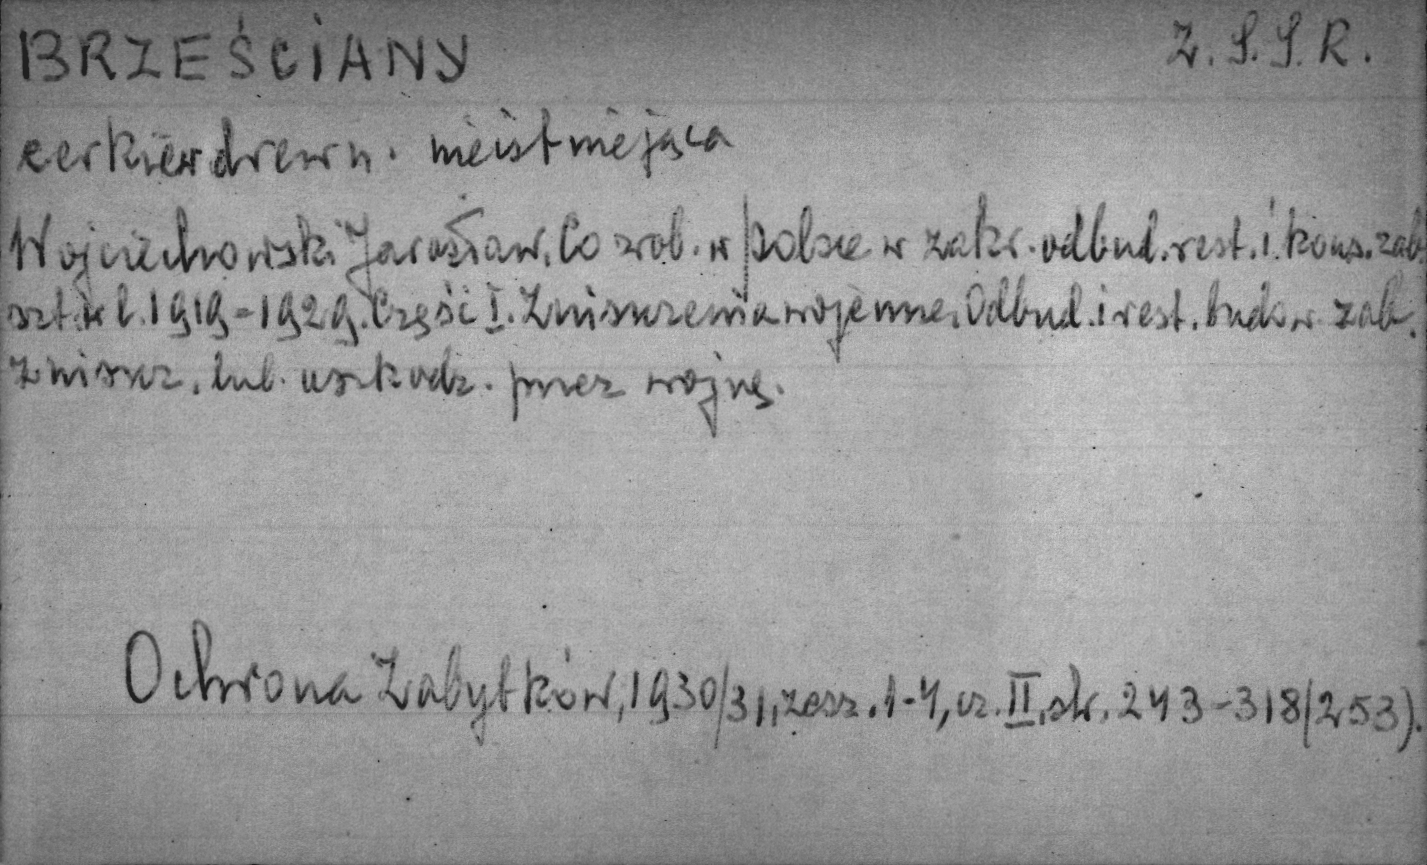 BRZEŚCIANY Z.S.S.R.
cerkiew drewn. nieistniejąca
Wojciechowski Jarosław. Co zrob. w Polsce w zakr. odbud. rest. i kons. zab.
szt. w l. 1919-1929. Część I. Zniszczenia wojenne. Odbud. i rest. budow. zab.
zniszcz. lub. uszkodz. przez wojnę.
Ochrona Zabytków, 1930/31, zesz. 1-4, cz. II, str. 243-318 (253).